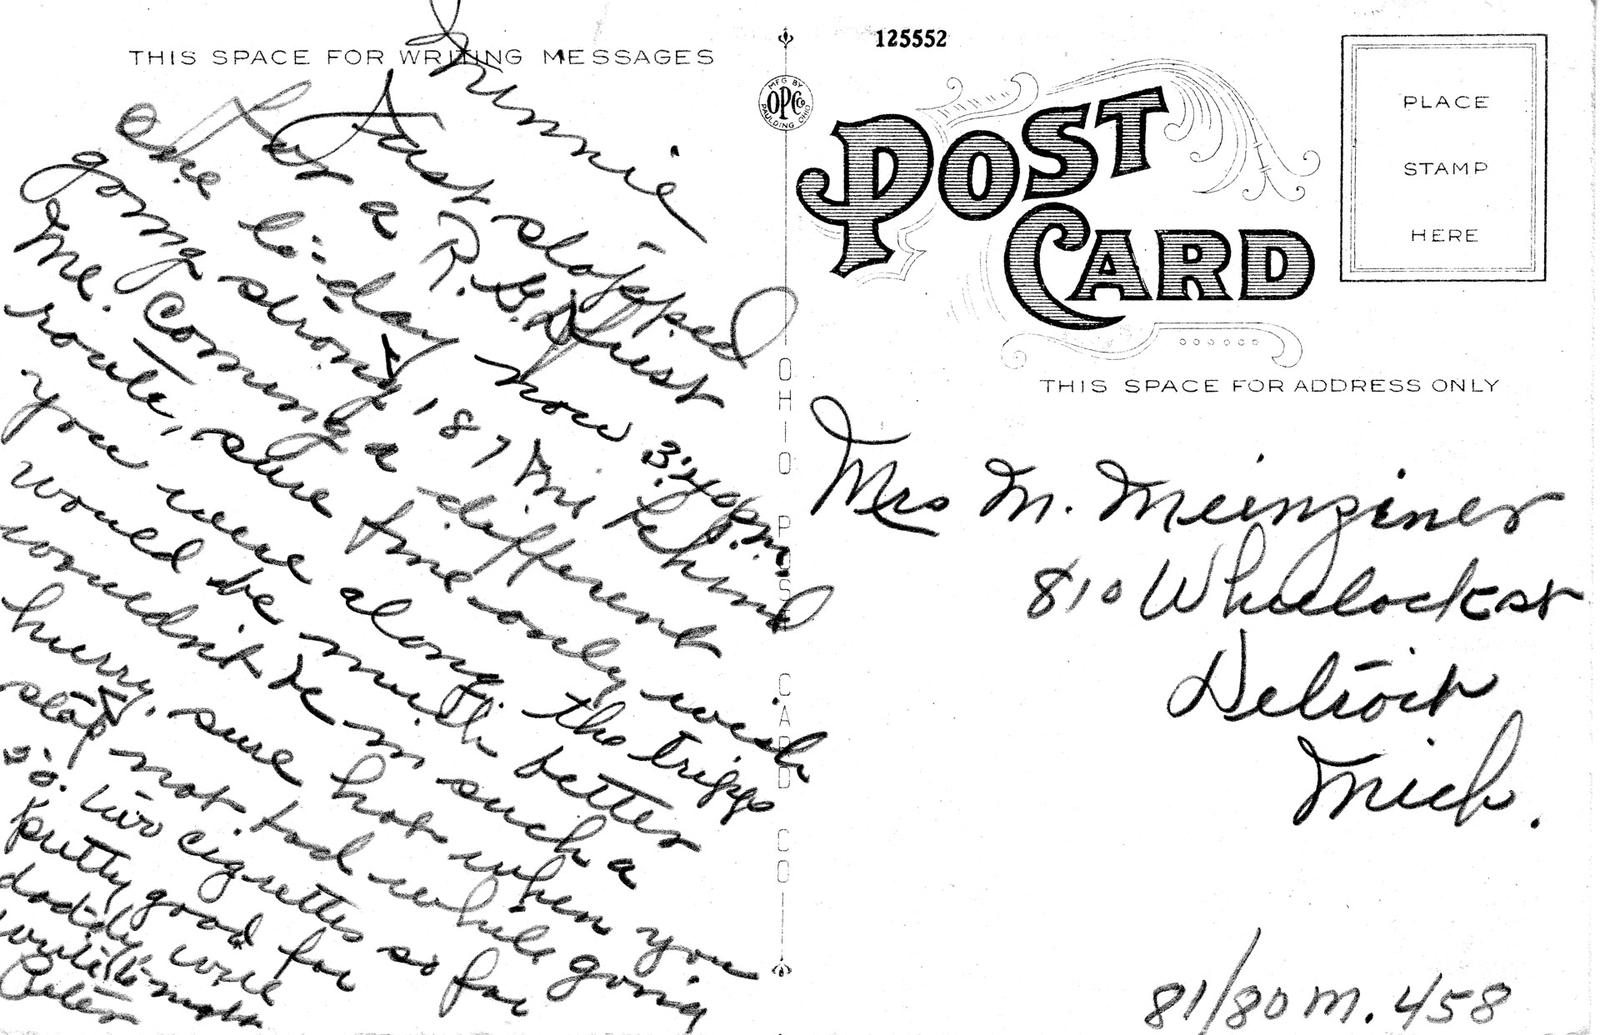 THIS SPACE FOR WRITING MESSAGES
Minnie
Just stopped
for a R.G. Dhust
are to-day now 3:40 p.m.
going strong, 187 mi behind
me. Coming a different
route, sure fine only wish
you were along, the tripps
would be much better
wouldn't be in such a
hurry. sure hot when you
stop not bad while going
50. two cigretts so far
pretty good for
daddy will
write to-morr
Peter
MFG BY
OPCo
PAULDING, OHIO
OHIO POST CARD CO
125552
POST
CARD
PLACE
STAMP
HERE
THIS SPACE FOR ADDRESS ONLY
Mrs M. Meinginer
810 Wheelock st
Detroit
Mich.
81/80 M. 458